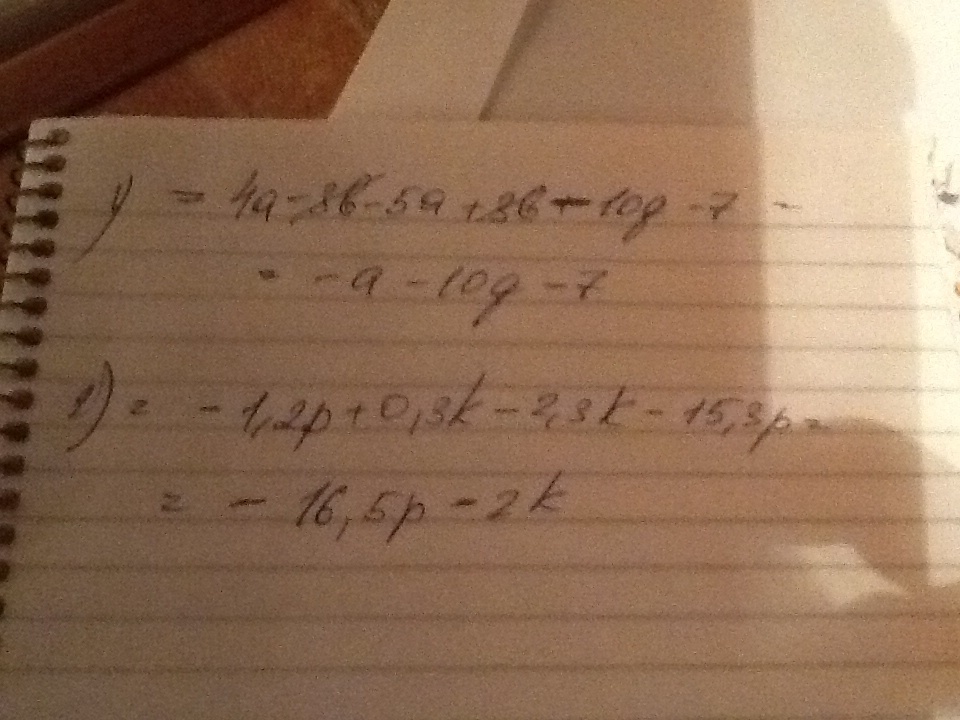 1) = 4a-8b-5a+8b-10q-7 -
= -a-10q-7
1) = -1,2p+0,3k-2,3k-15,3p=
= -16,5p-2k